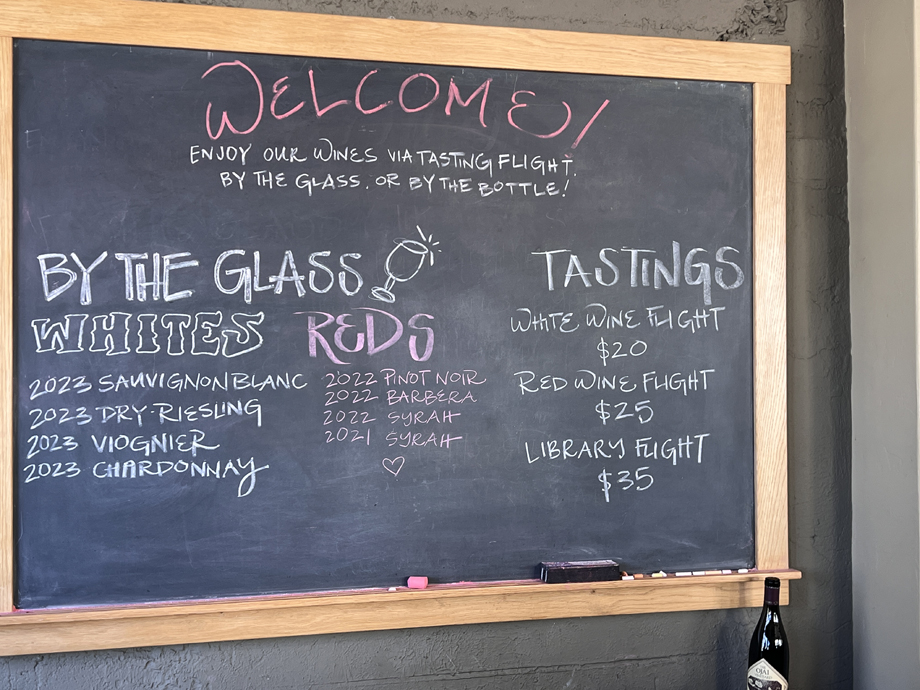 WELCOME!
ENJOY OUR WINES VIA TASTING FLIGHT,
BY THE GLASS, OR BY THE BOTTLE!
BY THE GLASS
WHITES
2023 SAUVIGNON BLANC
2023 DRY RIESLING
2023 VIOGNIER
2023 CHARDONNAY
REDS
2022 PINOT NOIR
2022 BARBERA
2022 SYRAH
2021 SYRAH
TASTINGS
WHITE WINE FLIGHT
$20
RED WINE FLIGHT
$25
LIBRARY FLIGHT
$35
OJAI